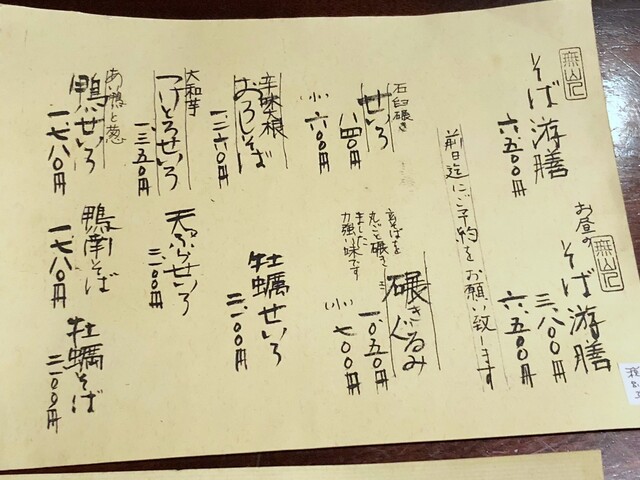 無山
そば游膳
六、五〇〇円
お昼の
無山
そば游膳
三、八〇〇円
六、五〇〇円
前日迄にご予約をお願い致します
石臼碾き
せいろ
八四〇円
小 六〇〇円
碾きぐるみ
玄そばを
丸ごと碾き
ました
力強い味です
一、〇五〇円
小 七〇〇円
辛味大根
おろしそば
一、二六〇円
牡蠣せいろ
二、一〇〇円
大和芋
つけとろせいろ
一、三五〇円
天ぷらせいろ
二、一〇〇円
あい鴨と葱
鴨せいろ
一、七八〇円
鴨南そば
一、七八〇円
牡蠣そば
二、一〇〇円